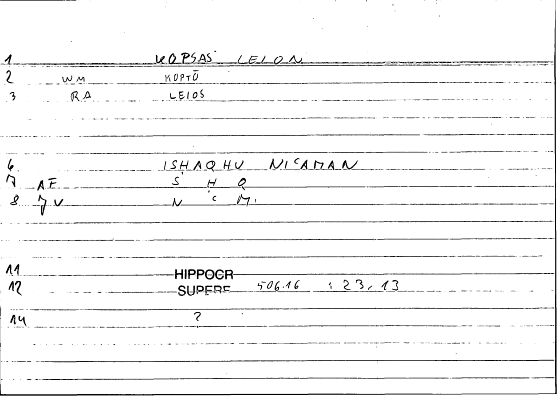 1 KOPSAS LEION
2 WM KOPTŌ
3 RA LEIOS
6 ISHAQHU NICAMAN
7 AF S H Q
8 JV N C M.
11 HIPPOCR
12 SUPERF 506.16 : 23, 13
14 ?